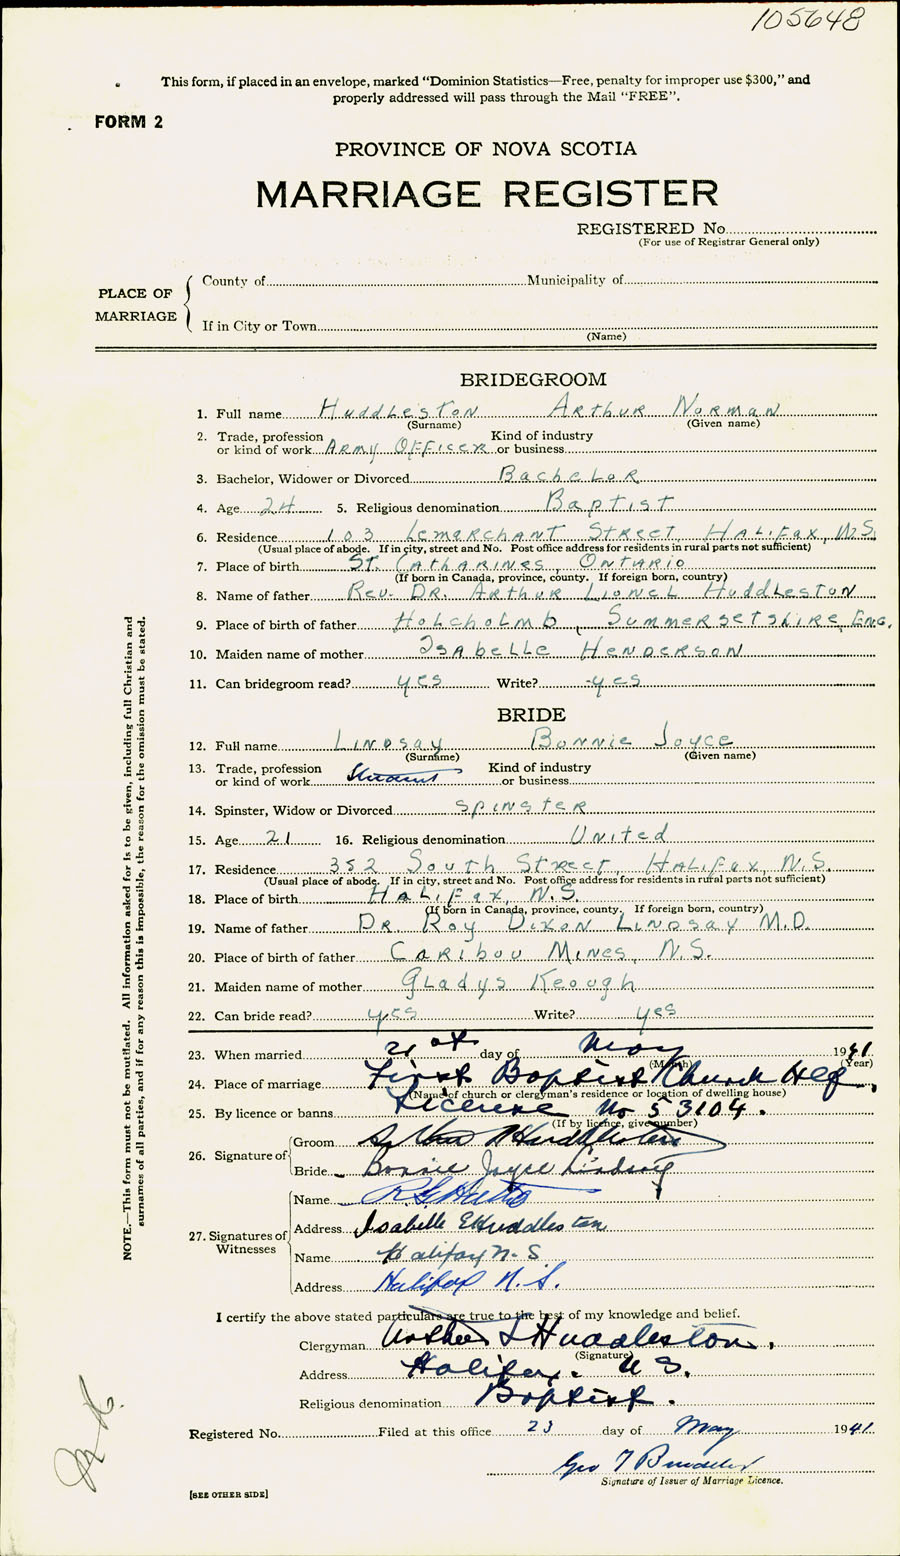 105648
This form, if placed in an envelope, marked “Dominion Statistics—Free, penalty for improper use $300,” and
properly addressed will pass through the Mail “FREE”.
FORM 2
PROVINCE OF NOVA SCOTIA
MARRIAGE REGISTER
REGISTERED No
(For use of Registrar General only)
PLACE OF MARRIAGE
County of Municipality of
If in City or Town
(Name)
BRIDEGROOM
1. Full name Huddleston Arthur Norman
(Surname) (Given name)
2. Trade, profession or kind of work Army Officer Kind of industry or business
3. Bachelor, Widower or Divorced Bachelor
4. Age 24 5. Religious denomination Baptist
6. Residence 103 Lemarchant Street, Halifax, N.S.
(Usual place of abode. If in city, street and No. Post office address for residents in rural parts not sufficient)
7. Place of birth St. Catharines, Ontario
(If born in Canada, province, county. If foreign born, country)
8. Name of father Rev. Dr. Arthur Lionel Huddleston
9. Place of birth of father Holcholmb, Summersetshire, Eng.
10. Maiden name of mother Isabelle Henderson
11. Can bridegroom read? yes Write? yes
BRIDE
12. Full name Lindsay Bonnie Joyce
(Surname) (Given name)
13. Trade, profession or kind of work Kind of industry or business
14. Spinster, Widow or Divorced Spinster
15. Age 21 16. Religious denomination United
17. Residence 352 South Street, Halifax, N.S.
(Usual place of abode. If in city, street and No. Post office address for residents in rural parts not sufficient)
18. Place of birth Halifax, N.S.
(If born in Canada, province, county. If foreign born, country)
19. Name of father Dr. Roy Dixon Lindsay M.D.
20. Place of birth of father Caribou Mines, N.S.
21. Maiden name of mother Gladys Keough
22. Can bride read? yes Write? yes
23. When married 21st day of May 1941
(Month) (Year)
24. Place of marriage First Baptist Church Hfx.
(Name of church or clergyman's residence or location of dwelling house)
25. By licence or banns License No 53104.
(If by licence, give number)
26. Signature of
Groom Huddleston
Bride Bonnie Joyce Lindsay
27. Signatures of Witnesses
Name
Address Isabelle E Huddleston
Name Halifax N.S
Address Halifax N.S.
I certify the above stated particulars are true to the best of my knowledge and belief.
Clergyman Arthur L Huddleston.
(Signature)
Address Halifax. N S.
Religious denomination Baptist.
Registered No. Filed at this office 23 day of May 1941
Geo T
Signature of Issuer of Marriage Licence.
[SEE OTHER SIDE]
NOTE.—This form must not be mutilated. All information asked for is to be given, including full Christian and
surnames of all parties, and if for any reason this is impossible, the reason for the omission must be stated.